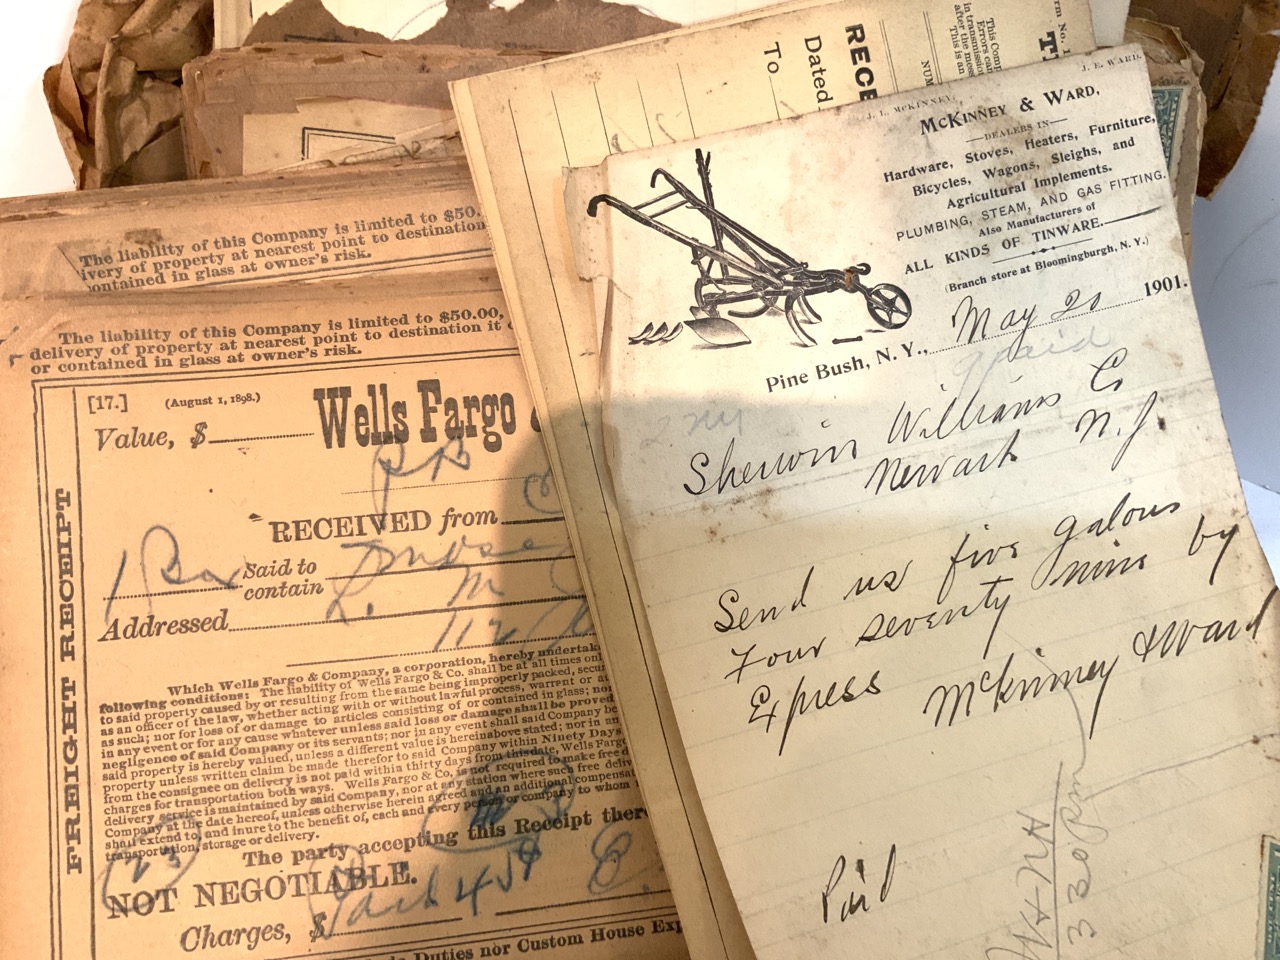 The liability of this Company is limited to $50.
ivery of property at nearest point to destination
ontained in glass at owner's risk.
The liability of this Company is limited to $50.00,
delivery of property at nearest point to destination it
or contained in glass at owner's risk.
FREIGHT RECEIPT
[17.] (August 1, 1898.)
Wells Fargo
Value, $
RECEIVED from
1 Box Said to contain
Addressed
112
Which Wells Fargo & Company, a corporation, hereby undertake
following conditions: The liability of Wells Fargo & Co. shall be at all times onl
to said property caused by or resulting from the same being improperly packed, secur
as an officer of the law, whether acting with or without lawful process, warrant or
as such; nor for loss of or damage to articles consisting of or contained in glass; nor
in any event or for any cause whatever unless said loss or damage shall be proved
negligence of said Company or its servants; nor in any event shall said Company be
said property is hereby valued, unless a different value is hereinabove stated; nor in an
property unless written claim be made therefor to said Company within Ninety Days
from the consignee on delivery is not paid within thirty days from this date, Wells Farg
charges for transportation both ways. Wells Fargo & Co. is not required to make free d
delivery service is maintained by said Company, nor at any station where such free deliv
Company at the date hereof, unless otherwise herein agreed and an additional compensat
shall extend to and inure to the benefit of, each and every person or company to whom
transportation, storage or delivery.
The party accepting this Receipt ther
(23)
NOT NEGOTIABLE.
Charges, $
Duties nor Custom House Exp
RECE
Dated
To
NUM
This Comp
Errors can
in transmission
after the mess
This is an
rm No. 1
J. L. McKINNEY.
J. E. WARD.
McKINNEY & WARD,
DEALERS IN
Hardware, Stoves, Heaters, Furniture,
Bicycles, Wagons, Sleighs, and
Agricultural Implements.
PLUMBING, STEAM, AND GAS FITTING.
Also Manufacturers of
ALL KINDS OF TINWARE.
(Branch store at Bloomingburgh, N. Y.)
Pine Bush, N. Y., May 20 1901.
paid
Sherwin Williams Co
Newark N.J.
Send us five galons
Four seventy nine by
Express
McKinney & Ward
Paid
330 Pm